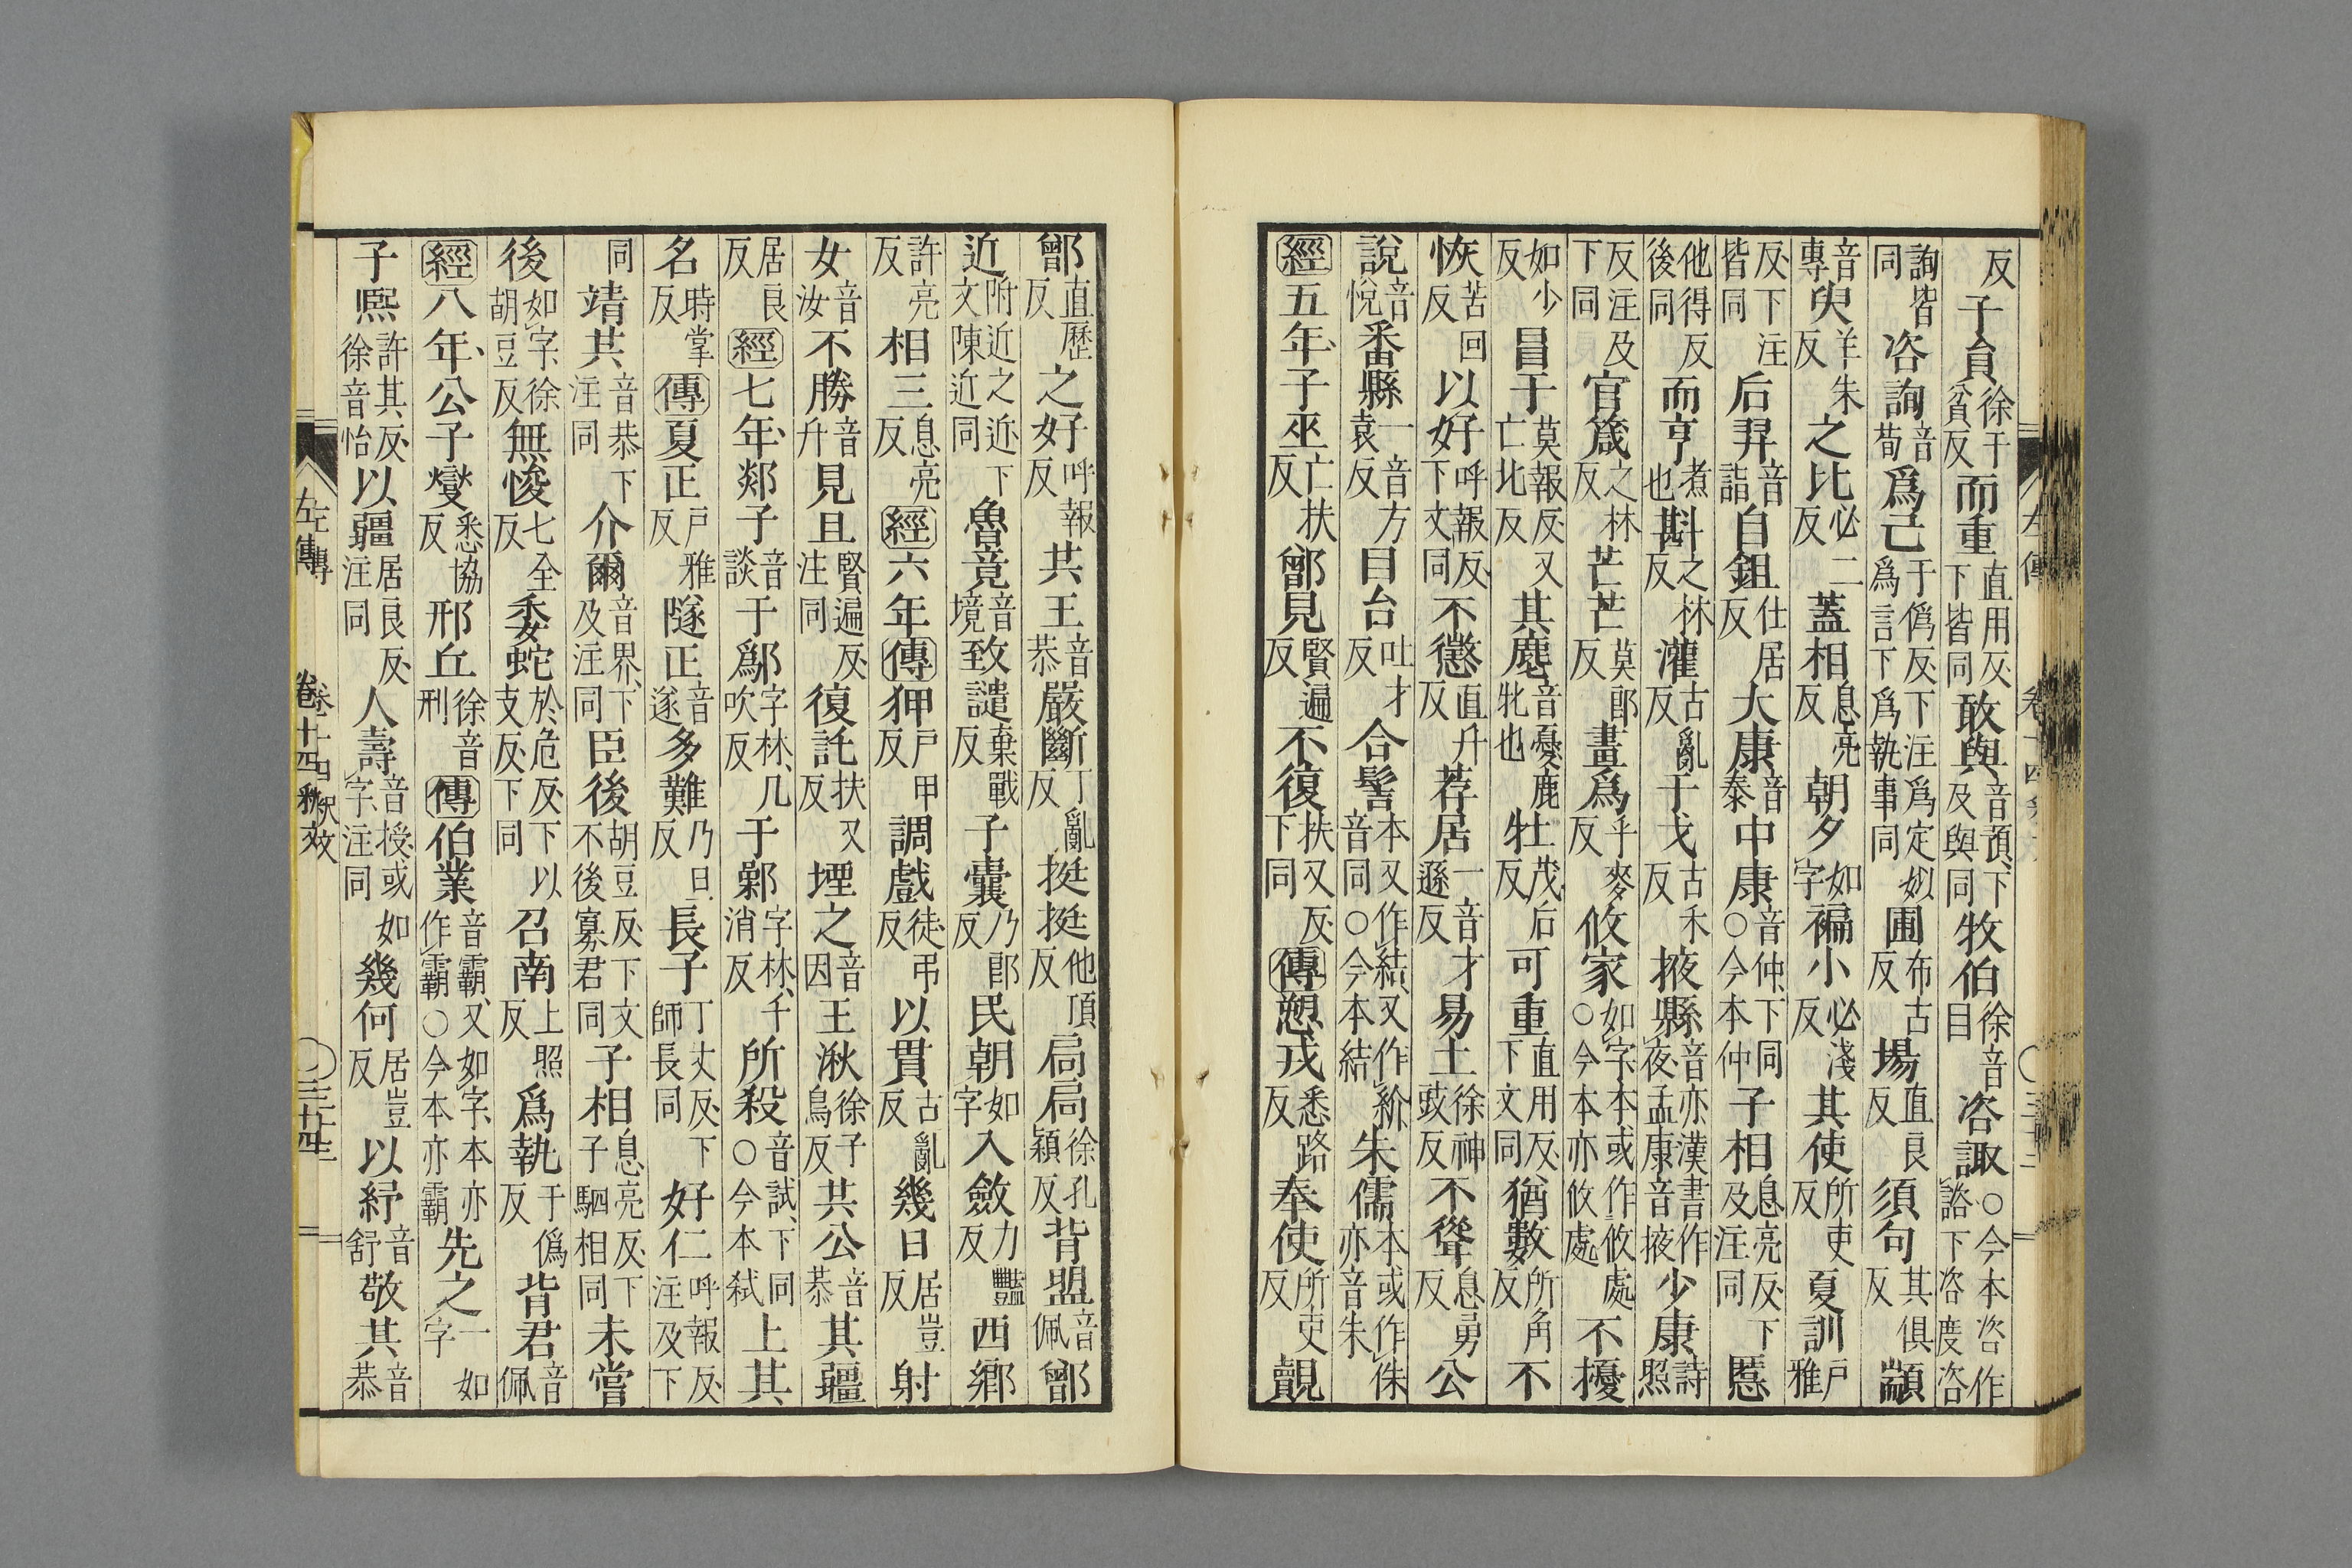 反子員徐于貧反而重直用反下皆同敢與音預下及與同牧伯徐音目咨諏○今本咨作諮下咨度咨
詢皆同咨詢音荀爲己于僞反下注爲定姒爲言下爲執事同圃布古反場直良反須句其俱反顓
音專臾羊朱反之比必二反蓋相息亮反朝夕如字褊小必淺反其使所吏反夏訓戶雅
反下注皆同后羿音詣自鉏仕居反大康音泰中康音仲下同○今本仲子相息亮反下及注同慝
他得反後同而亨煮也斟之林反灌古亂反于戈古禾反掖縣音亦漢書作夜孟康音掖少康詩照
反注及下同官箴之林反芒芒莫郎反畫爲乎麥反攸家如字本或作攸處○今本亦攸處不擾
如少反冒于莫報反又亡北反其麀音憂鹿牝也牡茂后反可重直用反下文同猶數所角反不
恢苦回反以好呼報反下文同不懲直升反荐居一音才遜反易土徐神豉反不聳息勇反公
說音悅番縣一音方袁反目台吐才反合髻本又作結又作紒音同○今本結朱儒本或作侏亦音朱
經五年子巫亡扶反鄫見賢遍反不復扶又反下同傳愬戎悉路反奉使所吏反覿
鄫直歷反之好呼報反共王音恭嚴斷丁亂反挺挺他頂反局局徐孔穎反背盟音佩鄫
近附近之近下文陳近同魯竟音境致譴棄戰反子囊乃郎反民朝如字入斂力豔反西鄉
許亮反相三息亮反經六年傳狎戶甲反調戲徒弔反以貫古亂反幾日居豈反射
女音汝不勝音升見且賢遍反注同復託扶又反堙之音因王湫徐子鳥反共公音恭其疆
居良反經七年郯子音談于鄬字林几吹反于鄵字林千消反所殺音試下同○今本弒上其
名時掌反傳夏正戶雅反隧正音遂多難乃旦反長子丁丈反下師長同好仁呼報反注及下
同靖共音恭下注同介爾音界下及注同臣後胡豆反下文不後寡君同子相息亮反下子駟相同未嘗
後如字徐胡豆反無悛七全反委蛇於危反下以支反下同召南上照反爲執于僞反背君音佩
經八年公子燮悉協反邢丘徐音刑傳伯業音霸又如字本亦作霸○今本亦霸先之一如字
子熙許其反徐音怡以疆居良反注同人壽音授或如字注同幾何居豈反以紓音舒敬共音恭
左傳 卷十四釋文